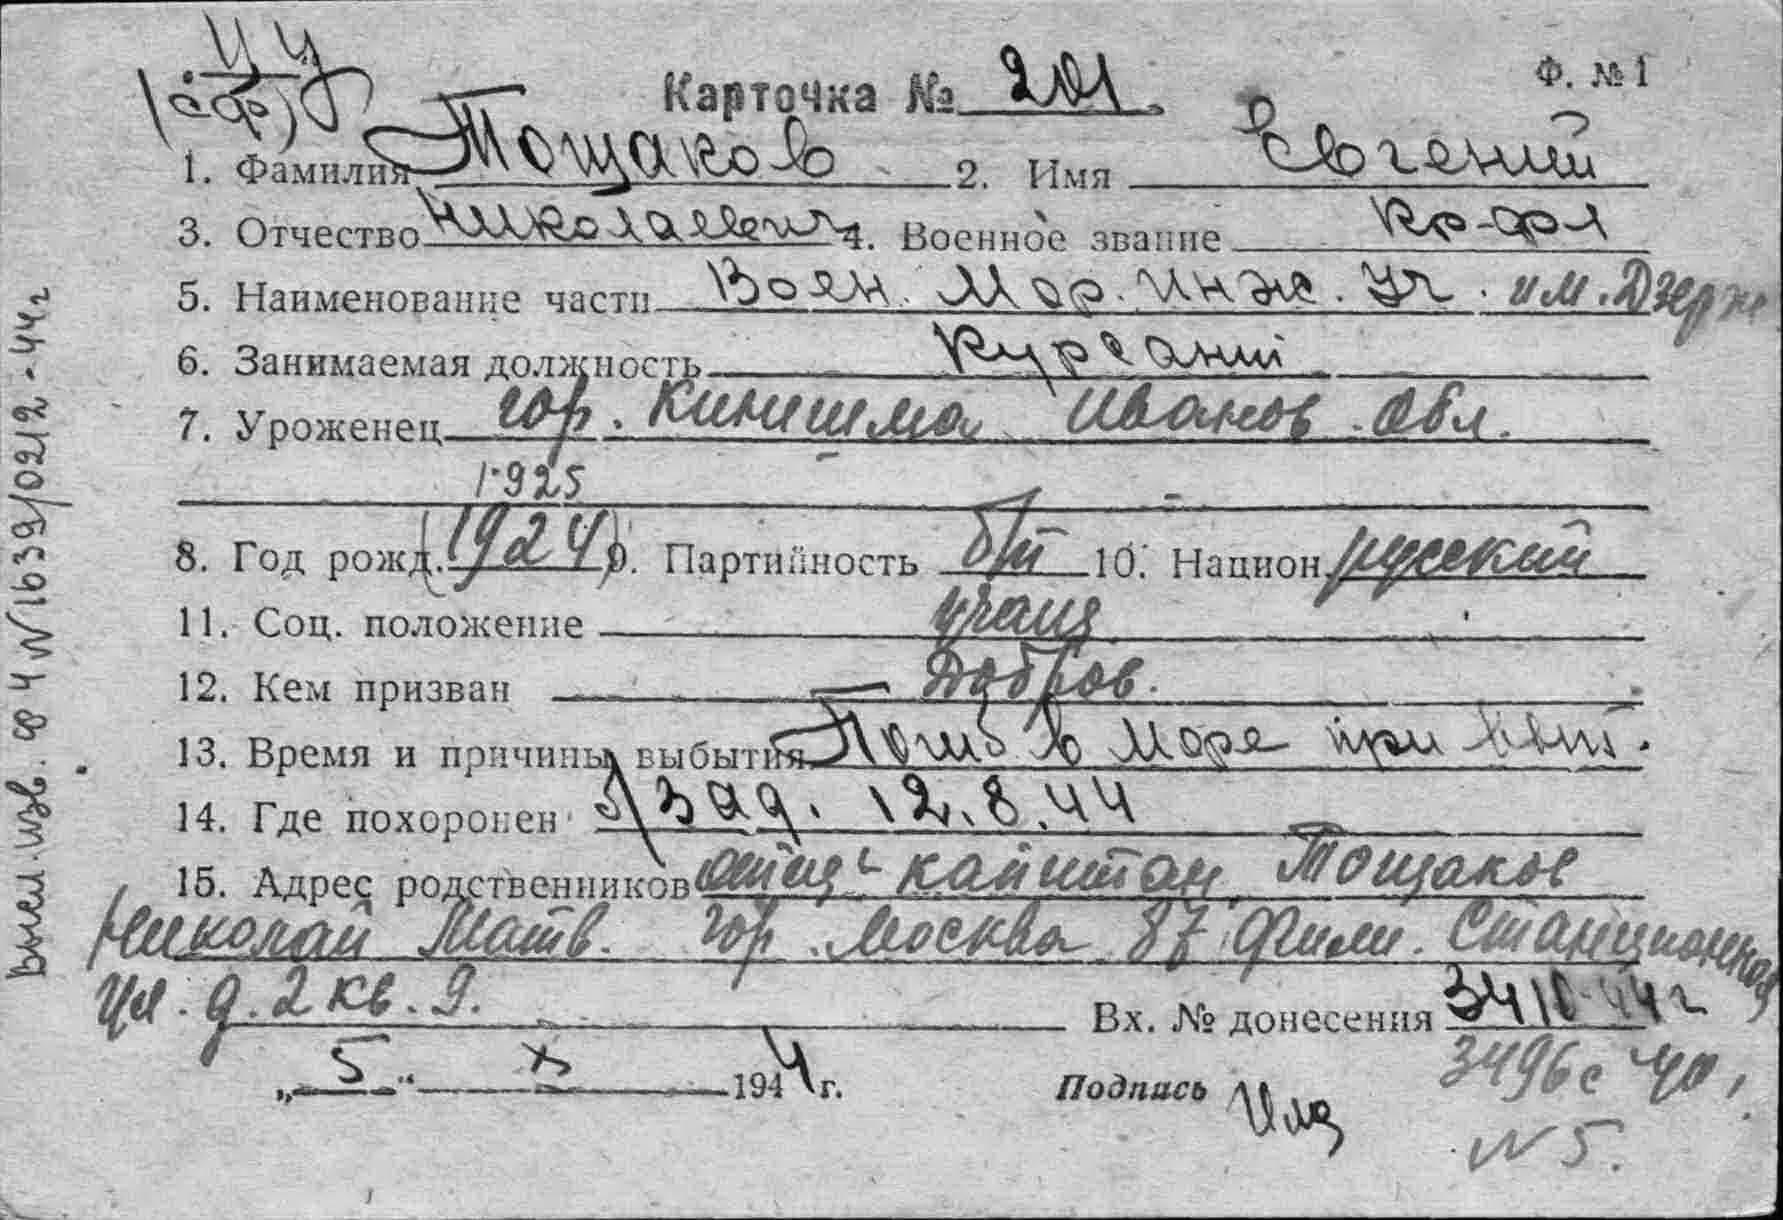 (сф)
Карточка № 201
Ф. № 1
1. Фамилия Тощаков 2. Имя Евгений
3. Отчество Николаевич 4. Военное звание кр-фл
5. Наименование части Воен. Мор. Инж. Уч. им. Дзерж
6. Занимаемая должность Курсант
7. Уроженец гор. Кинишма Иванов. обл.
1925
8. Год рожд. (1924) 9. Партийность б/п 10. Национ. русский
11. Соц. положение учащ
12. Кем призван Добров.
13. Время и причины выбытия Погиб в море при вып.
14. Где похоронен б/зад. 12.8.44
15. Адрес родственников отец - капитан Тощаков
Николай Матв. гор. Москва 87 Фили. Станционная
ул. д. 2 кв. 9.
Вх. № донесения 34 10.44 г
3496с
„5“ X 1944 г. Подпись
N 5.
Высл. изв. ф 4 N 1639/0212-44 г